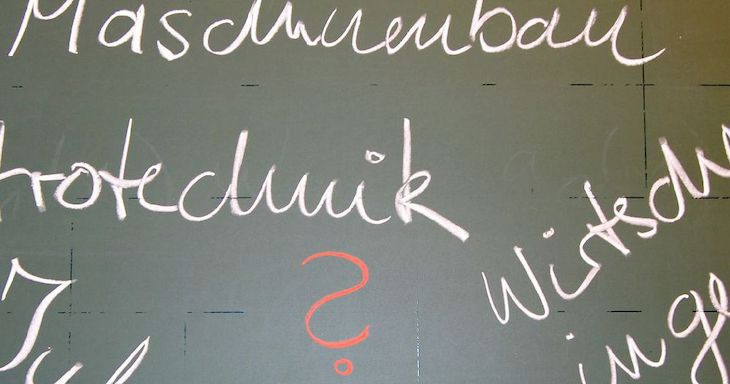 Maschinenbau
trotechnik
Wirtsch
?
inge